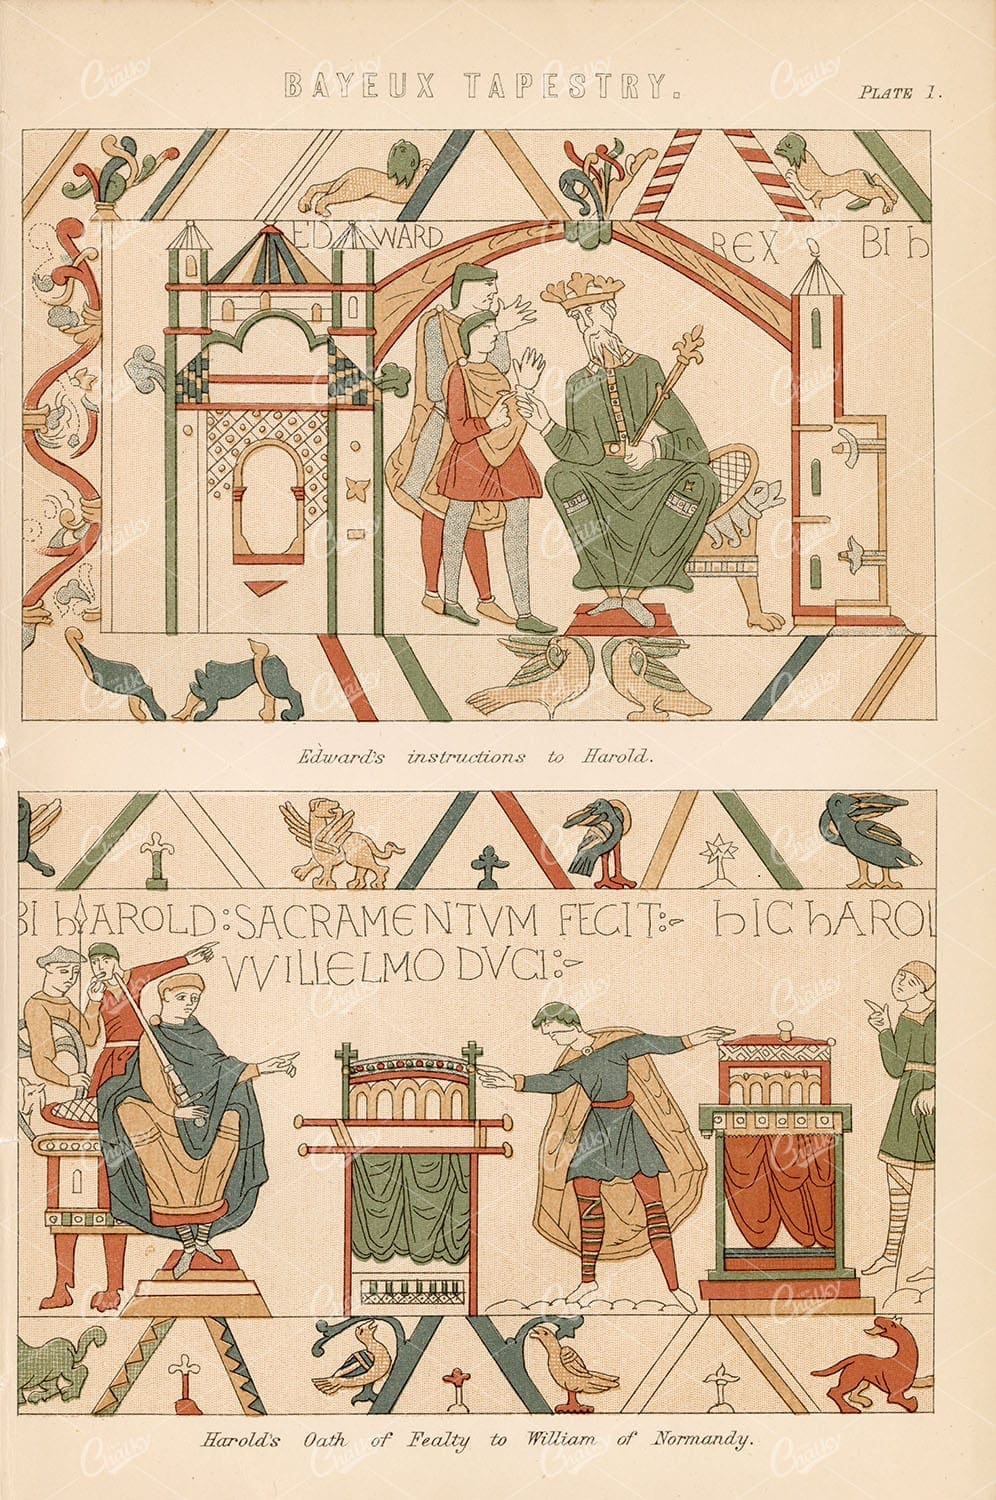 BAYEUX TAPESTRY.
PLATE 1.
EDWARD REX BI h
Edward's instructions to Harold.
BI hAROLD:SACRAMENTVM FECIT:- hIC hAROL
VVILLELMO DVCI:-
Harold's Oath of Fealty to William of Normandy.
Chalky